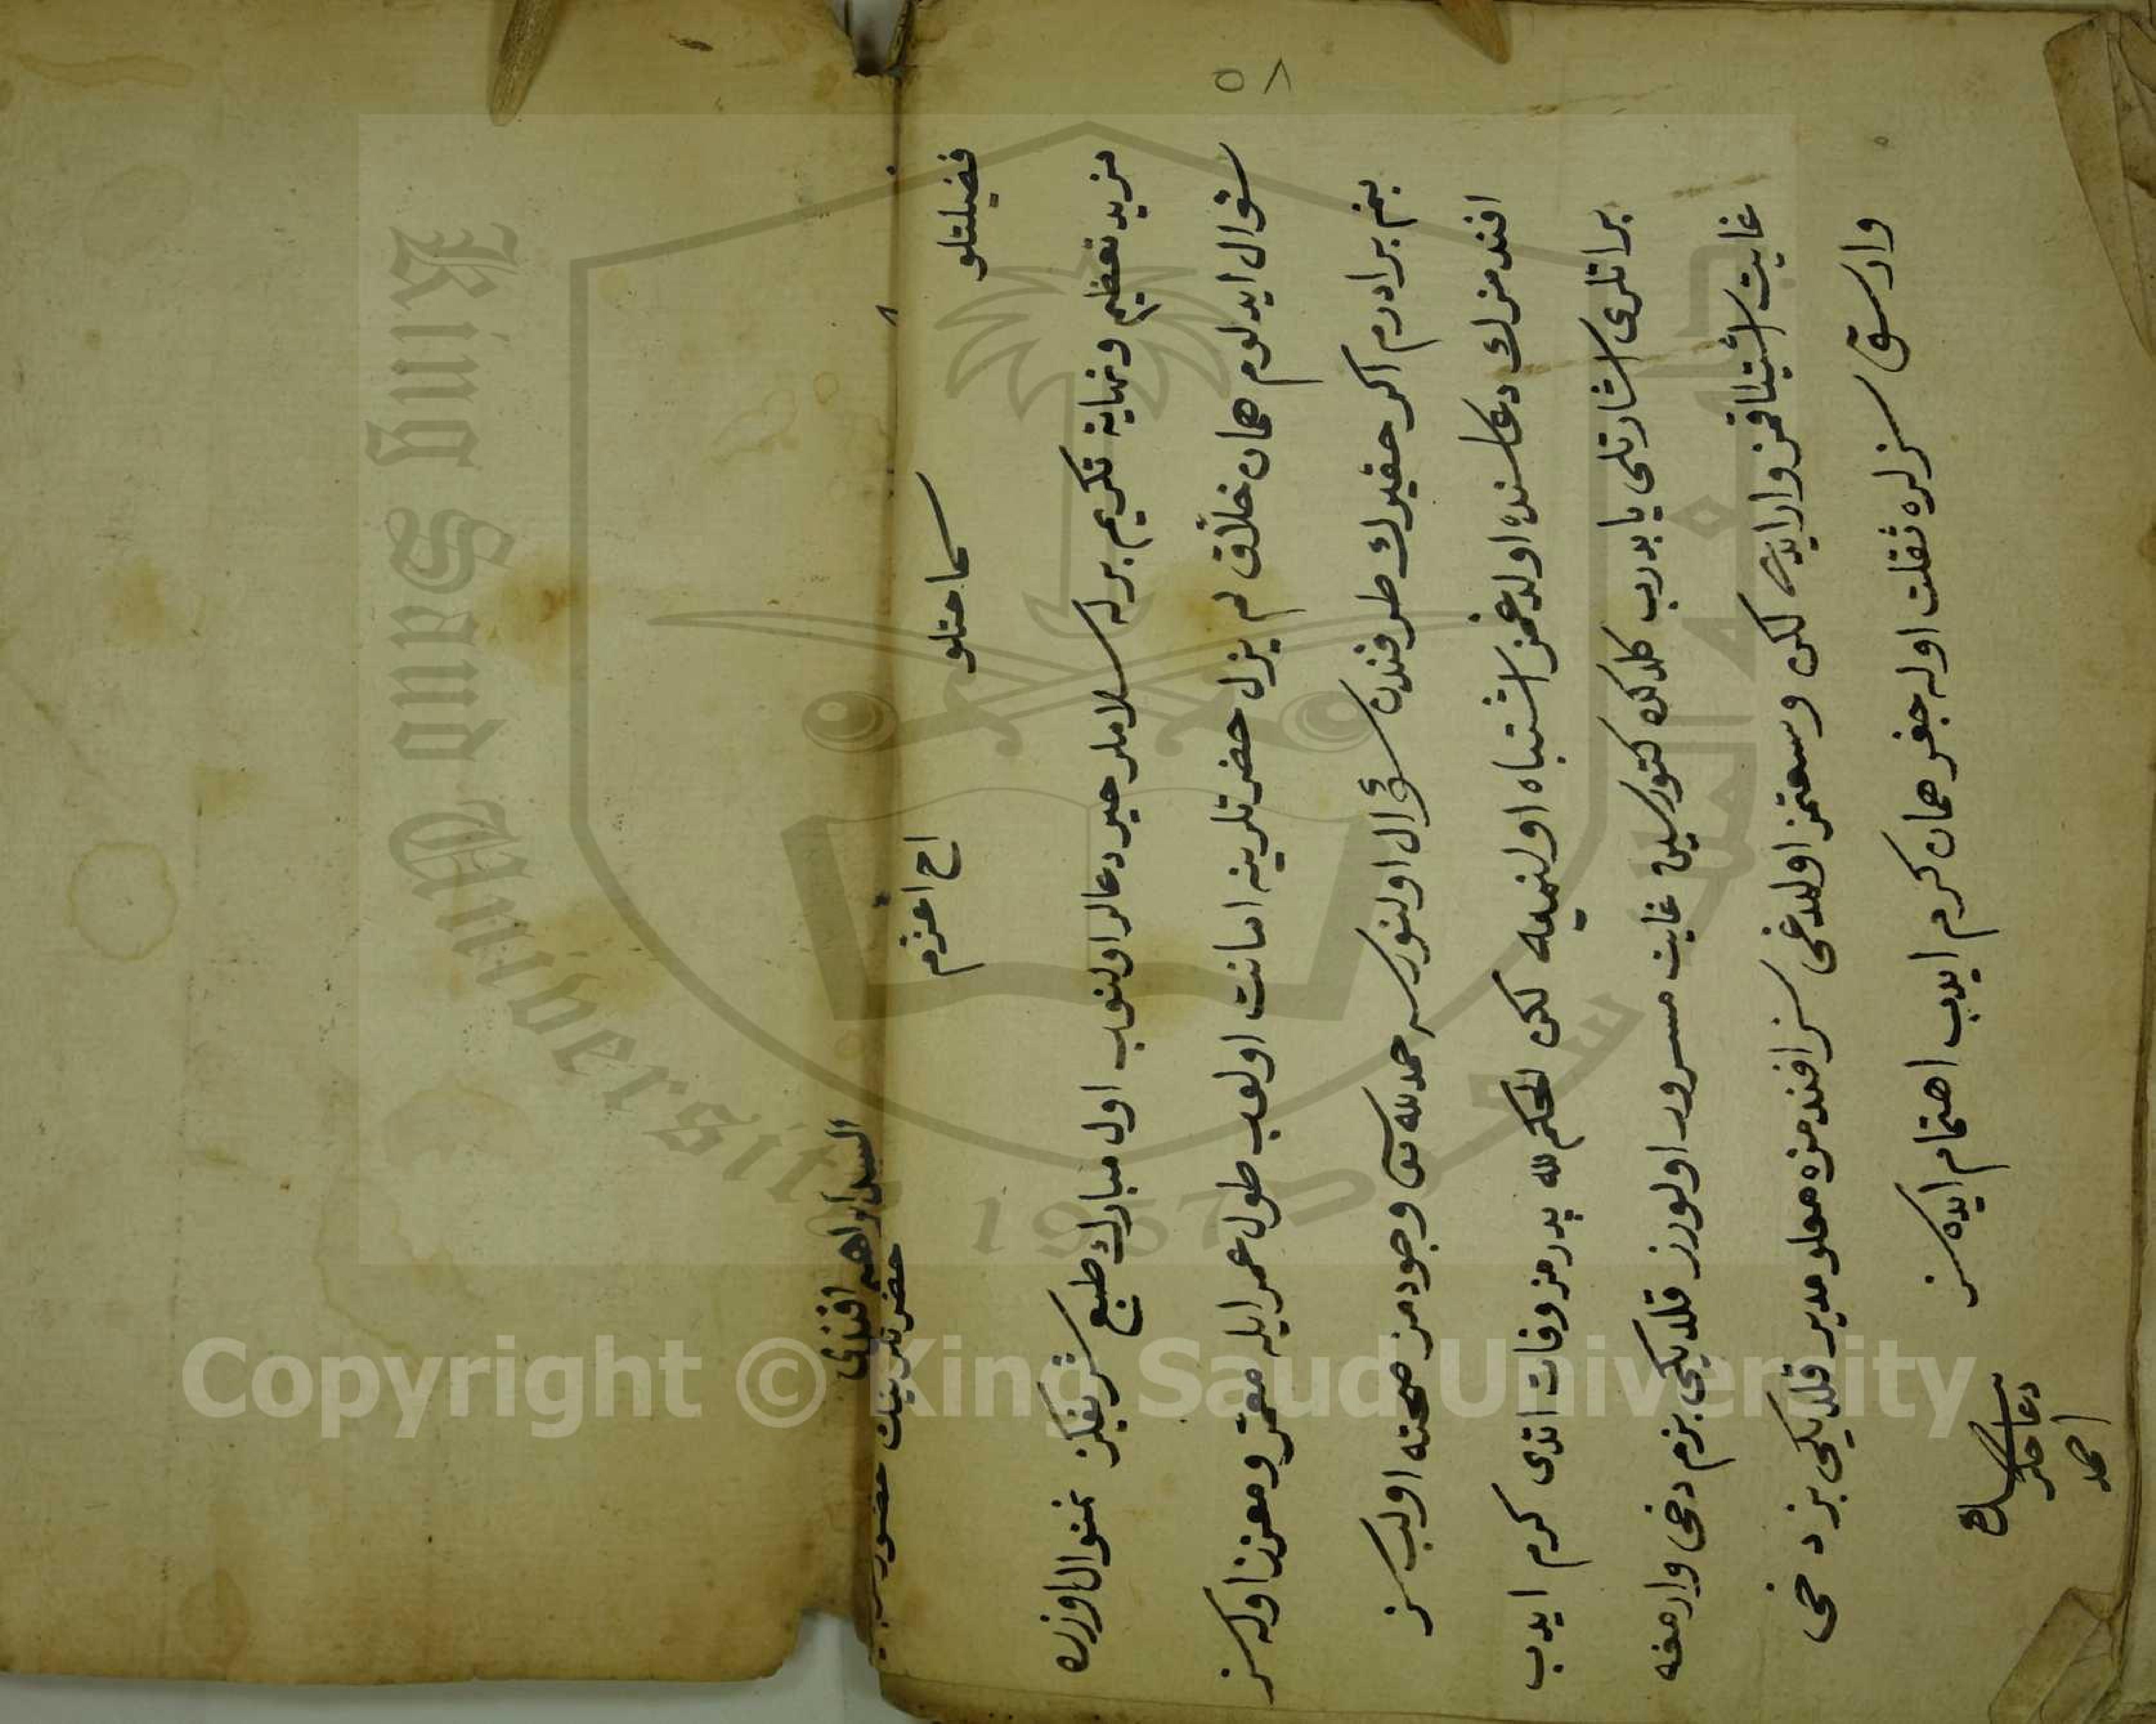 ٥٨
السيد ابراهيم افندى
حضرتلرينك حضور
فضيلتلو سماحتلو اخ اعزم
مزيد تعظيم ونهاية تكريم برله سلاملر خير دعالر اولنوب اول مبارك طبع شريفكز نمنوال اوزره
سئوال ايدلوم همان خلاق لم يزل حضرتلرينه امانت اولوب طول عمر ايله معمر ومعزز اوله سز
بنم برادرم اكر حقيرك طرفندن سؤال اولنورسه حمد لله وجودمز صحته اولب سز
افندمزك دعاسنده اولدغمز اشتباه اولنميه لكن الحكم لله پدرمز وفات اتدى كرم ايدب
براتلرى اشارتلى يا بدرب كلدكن كتورسين غايت مسرور اولورز قلديكى بزم دخى وارمغه
غايت اشتياقمز وارايدى لكن وسعتمز اولمدغى سز افندمزه معلومدير قلديكى بز دخى
وارسق سزلره ثقلت اوله جغز همان كرم ايدب اهتمام ايده سز
دعاجكز
احمد
King Saud University
1957
جامعة الملك سعود
Copyright © King Saud University